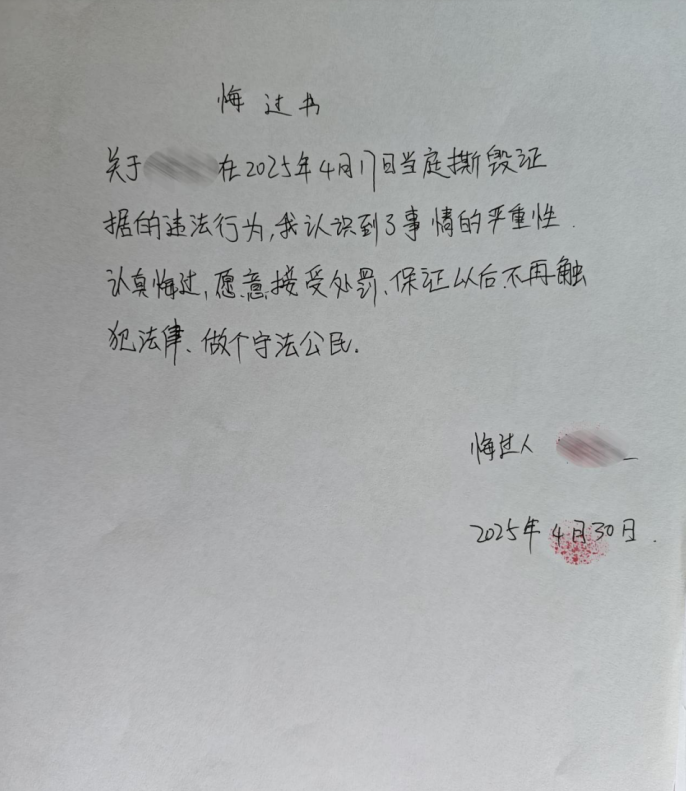 悔过书
关于 在2025年4月17日当庭撕毁证
据的违法行为,我认识到了事情的严重性.
认真悔过,愿意接受处罚、保证以后不再触
犯法律、做个守法公民.
悔过人
2025年4月30日.